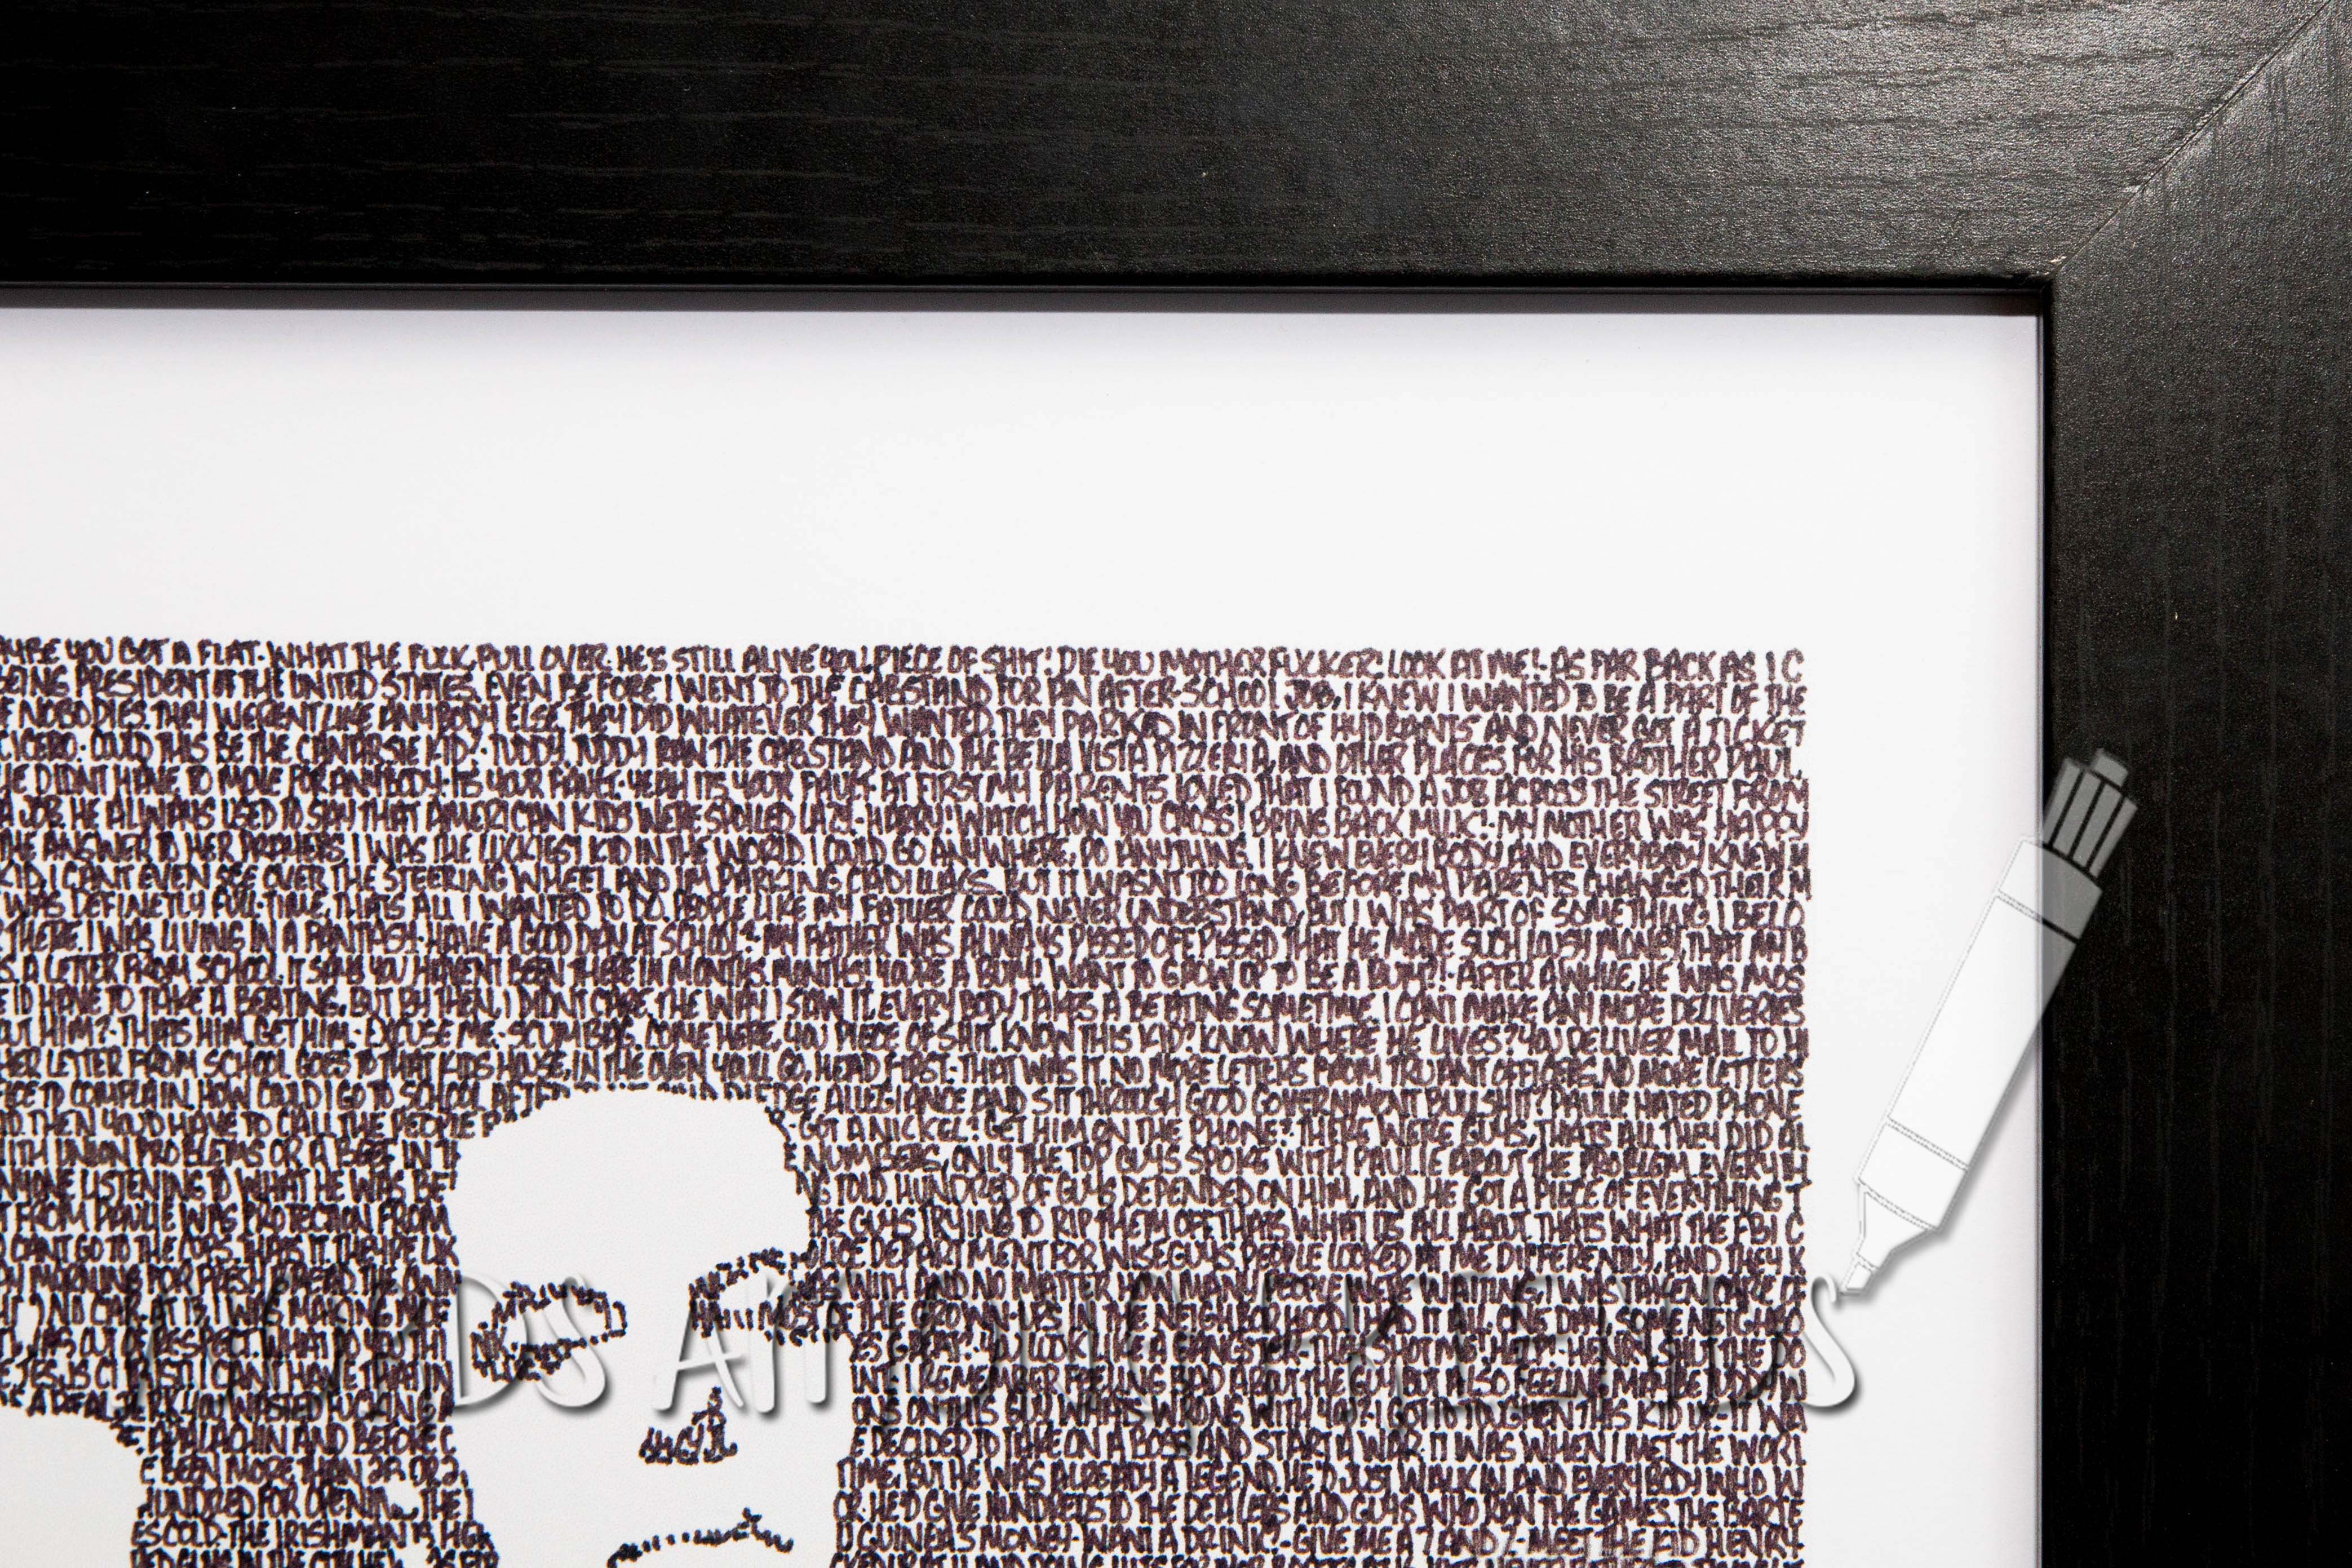 YOU GOT A FLAT. WHAT THE FUCK, PULL OVER. HE'S STILL ALIVE. YOU PIECE OF SHIT! DIE YOU MOTHER FUCKER! LOOK AT ME!. AS FAR BACK AS I C
BEING PRESIDENT OF THE UNITED STATES. EVEN BEFORE I WENT TO THE CABSTAND FOR AN AFTER-SCHOOL JOB, I KNEW I WANTED TO BE A PART OF THE
NOBODIES. THEY WERENT LIKE ANYBODY ELSE. THEY DID WHATEVER THEY WANTED. THEY PARKED IN FRONT OF HYDRANTS AND NEVER GOT A TICKET
CICERO. COULD THIS BE THE CANARSIE KID?. TUDDY. TUDDY RAN THE CABSTAND AND THE BELLA VISTA PIZZERIA, AND OTHER PLACES FOR HIS BROTHER PAUL.
HE DIDNT HAVE TO MOVE FOR ANYBODY. ITS YOUR FAULT. YEAH ITS YOUR FAULT. AT FIRST MY PARENTS LOVED THAT I FOUND A JOB ACROSS THE STREET FROM
A JOB. HE ALWAYS USED TO SAY THAT AMERICAN KIDS WERE SPOILED LAZY. HENRY! WATCH HOW YOU CROSS! BRING BACK MILK!. MY MOTHER WAS HAPPY
THE ANSWER TO HER PRAYERS. I WAS THE LUCKIEST KID IN THE WORLD. I COULD GO ANYWHERE, DO ANYTHING. I KNEW EVERYBODY AND EVERYBODY KNEW M
KID. I CANT EVEN SEE OVER THE STEERING WHEEL AND IM PARKING CADILLACS. BUT IT WASNT TOO LONG BEFORE MY PARENTS CHANGED THEIR M
WAS DEFINETLY FULL TIME. THATS ALL I WANTED TO DO. PEOPLE LIKE MY FATHER COULD NEVER UNDERSTAND, BUT I WAS PART OF SOMETHING. I BELO
THERE. I WAS LIVING IN A FANTASY. HAVE A GOOD DAY AT SCHOOL?. MY FATHER WAS ALWAYS PISSED OFF. PISSED THAT HE MADE SUCH LOUSY MONEY, THAT MY B
A LETTER FROM SCHOOL. IT SAYS YOU HAVENT BEEN THERE IN MONTHS. MONTHS! YOURE A BUM! WANT TO GROW UP TO BE A BUM?!. AFTER A WHILE, HE WAS MOS
ID HAVE TO TAKE A BEATING. BUT BY THEN, I DIDNT CARE. THE WAY I SAW IT, EVERYBODY TAKES A BEATING SOMETIME. I CANT MAKE ANY MORE DELIVERIES
OUT HIM?. THATS HIM. GET HIM. EXCUSE ME. SCUMBAG. COME HERE, YOU PIECE OF SHIT. KNOW THIS KID? KNOW WHERE HE LIVES? YOU DELIVER MAIL TO H
LETTER FROM SCHOOL GOES TO THAT KIDS HOUSE, IN THE OVEN YOU'LL GO, HEAD FIRST. THAT WAS IT. NO MORE LETTERS FROM TRUANT OFFICERS. NO MORE LETTERS
TO COMPLAIN. HOW COULD I GO TO SCHOOL AFTER ALLEGIANCE AND SIT THROUGH GOOD GOVERNMENT BULLSHIT? PAULIE HATED PHONE
THEN YOU'D HAVE TO CALL THE PEOPLE GOT A NICKEL? GET HIM ON THE PHONE?. THERE WERE GUYS, THATS ALL THEY DID AL
WITH UNION PROBLEMS OR A BEEF IN T NUMBERS, ONLY THE TOP GUYS SPOKE WITH PAULIE ABOUT THE PROBLEM. EVERYTH
LISTENING TO WHAT HE WAS BE TOLD. HUNDRED OF GUYS DEPENDED ON HIM, AND HE GOT A PIECE OF EVERYTHING T
FROM PAULIE WAS PROTECTION FROM GUYS TRYING TO RIP THEM OFF. THATS WHAT ITS ALL ABOUT. THATS WHAT THE FBI C
CANT GO TO THE COPS. THATS IT. THEY'RE LIK DEPARTMENT FOR WISEGUYS. PEOPLE LOOKED AT ME DIFFERENTLY, AND THEY K
MORNING FOR FRESH BREAD. THE OWN WITH AND NO MATTER HOW MANY PEOPLE WERE WAITING, I WAS TAKEN CARE OF
NO CAR. AT 13 I WAS MAKING MORE OF THE GROWN UPS IN THE NEIGHBORHOOD. I HAD IT ALL. ONE DAY, SOME NEIGHBO
WAS OUT OF RESPECT. WHAT DO YOU THI GREAT?. YOU LOOK LIKE A GANGSTER. THEY SHOT ME! HELP!. HENRY, SHUT THE DO
JESUS CHRIST! I CANT HAVE THAT IN I REMEMBER FEELING BAD ABOUT THE GUY. BUT ALSO FEELING MAYBE TUDDY W
YOU WASTED FUCKING ON THIS GUY. WHATS WRONG WITH YOU?. I GOT TO TOUGHEN THIS KID UP. IT WA
APALACHIN AND BEFORE C DECIDED TO TAKE ON A BOSS AND START A WAR. IT WAS WHEN I MET THE WORL
BEEN MORE THAN 28 OR 29 TIME. BUT HE WAS ALREADY A LEGEND. HE'D JUST WALK IN AND EVERYBODY WHO W
HUNDRED FOR OPENING THE HE'D GIVE HUNDREDS TO THE DEALERS AND GUYS WHO RAN THE GAMES. THE BARTE
COLD. THE IRISHMAN IS HERE GUINEAS MONEY. WANT A DRINK?. GIVE ME A 7 AND 7. MEET THE KID HENRY.
WORDS AMONG FRIENDS